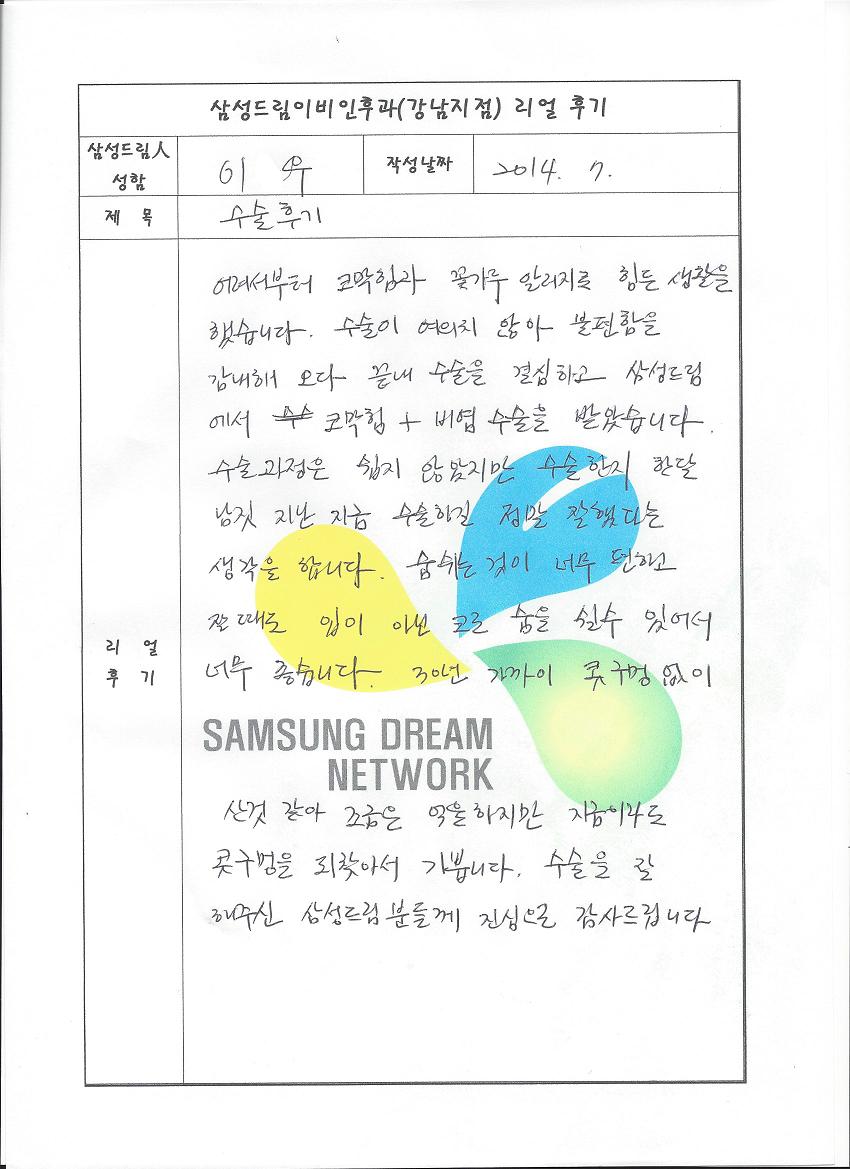 삼성드림이비인후과(강남지점) 리얼 후기
삼성드림人
성함
이
작성날짜
2014. 7.
제 목
수술후기
어려서부터 코막힘과 꽃가루 알러지로 힘든 생활을
했습니다. 수술이 여의치 않아 불편함을
감내해 오다 끝내 수술을 결심하고 삼성드림
에서 코막힘 + 비염 수술을 받았습니다.
수술과정은 쉽지 않았지만 수술한지 한달
남짓 지난 지금 수술하길 정말 잘했다는
생각을 합니다. 숨쉬는 것이 너무 편하고
잘 때도 입이 아닌 코로 숨을 쉴수 있어서
너무 좋습니다. 30년 가까이 콧구멍 없이
리 얼
후 기
SAMSUNG DREAM
NETWORK
산것 같아 조금은 억울하지만 지금이라도
콧구멍을 되찾아서 기쁩니다. 수술을 잘
해주신 삼성드림 분들께 진심으로 감사드립니다